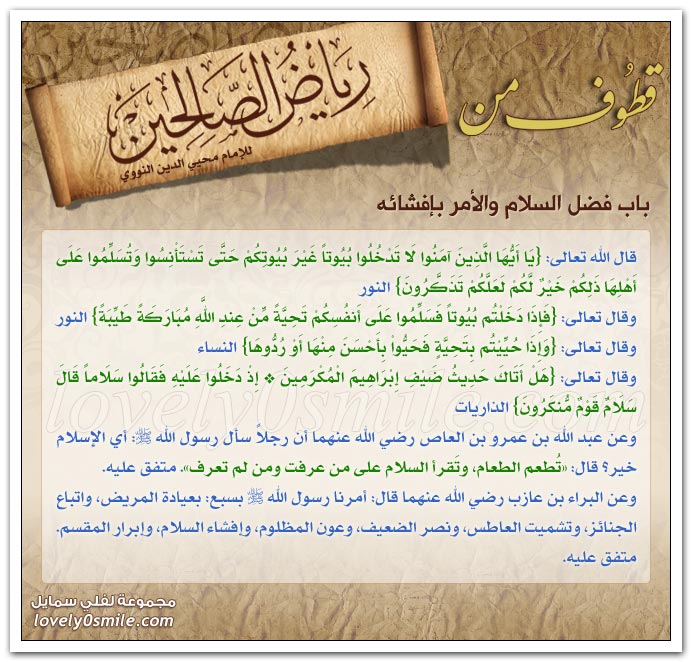 قطوف من
رِيَاضُ الصَّالِحِين
للإمام محيي الدين النووي
باب فضل السلام والأمر بإفشائه
قال الله تعالى: {يَا أَيُّهَا الَّذِينَ آمَنُوا لَا تَدْخُلُوا بُيُوتاً غَيْرَ بُيُوتِكُمْ حَتَّى تَسْتَأْنِسُوا وَتُسَلِّمُوا عَلَى
أَهْلِهَا ذَلِكُمْ خَيْرٌ لَّكُمْ لَعَلَّكُمْ تَذَكَّرُونَ} النور
وقال تعالى: {فَإِذَا دَخَلْتُم بُيُوتاً فَسَلِّمُوا عَلَى أَنفُسِكُمْ تَحِيَّةً مِّنْ عِندِ اللَّهِ مُبَارَكَةً طَيِّبَةً} النور
وقال تعالى: {وَإِذَا حُيِّيْتُم بِتَحِيَّةٍ فَحَيُّواْ بِأَحْسَنَ مِنْهَا أَوْ رُدُّوهَا} النساء
وقال تعالى: {هَلْ أَتَاكَ حَدِيثُ ضَيْفِ إِبْرَاهِيمَ الْمُكْرَمِينَ ❖ إِذْ دَخَلُوا عَلَيْهِ فَقَالُوا سَلَاماً قَالَ
سَلَامٌ قَوْمٌ مُّنكَرُونَ} الذاريات
وعن عبد الله بن عمرو بن العاص رضي الله عنهما أن رجلاً سأل رسول الله ﷺ: أي الإسلام
خير؟ قال: «تُطعم الطعام، وتَقرأ السلام على من عرفت ومن لم تعرف». متفق عليه.
وعن البراء بن عازب رضي الله عنهما قال: أمرنا رسول الله ﷺ بسبع: بعيادة المريض، واتباع
الجنائز، وتشميت العاطس، ونصر الضعيف، وعون المظلوم، وإفشاء السلام، وإبرار المقسم.
متفق عليه.
lovely0smile.com
مجموعة لفلي سمايل
lovely0smile.com